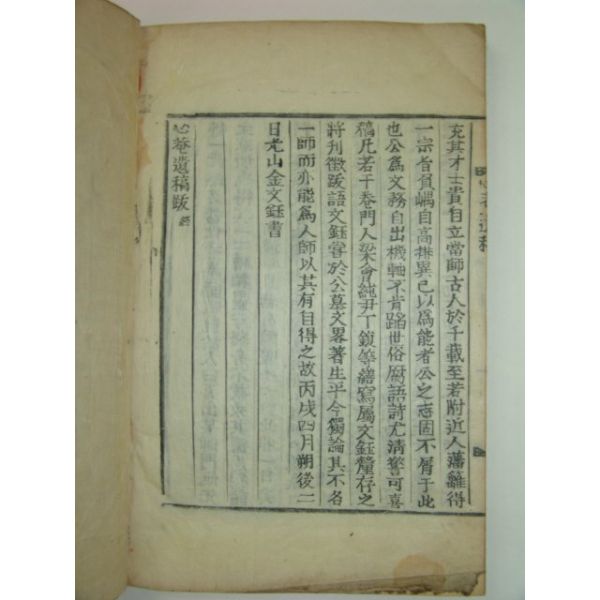 充其才士貴自立當師古人於千載至若附近人藩籬得
一宗旨負嵎自高排異己以爲能者公之志固不屑于此
也公爲文務自出機軸不肯蹈世俗腐語詩尤淸警可喜
稿凡若干卷門人梁會純尹丁鎖等繕寫屬文鈺釐存之
將刊徵跋語文鈺嘗於公墓文畧著生平今獨論其不名
一師而亦能爲人師以其有自得之故丙戌四月朔後二
日光山金文鈺書
心菴遺稿跋 終